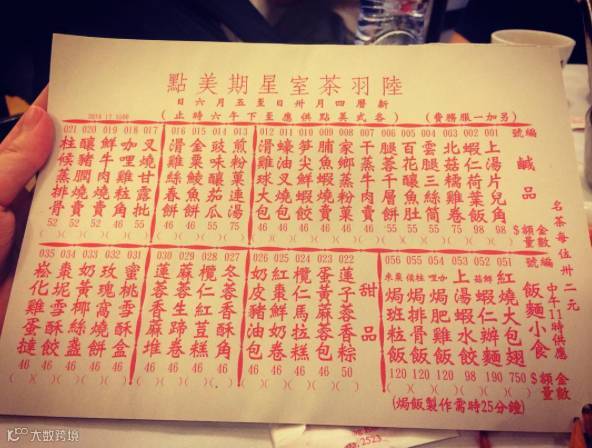 陸羽茶室星期美點
新曆四月卅日至五月六日
(各式美點供應至下午六時止)
(另加一服務費)
編號
鹹品
金數額量$
001 上湯片兒
002 蝦仁荷葉飯
003 北菇糯雞卷
004 雲腿三絲筒
005 百花釀魚肚
008 家鄉蒸粉菓
009 脯魚蝦燒賣
010 筍尖鮮蝦餃
011 蠔油叉燒包
012 滑雞球大包
013 煎粉菓連湯 75
014 豉味釀茄瓜 55
016 滑雞絲春餅 46
017 叉燒甘露批 46
018 咖喱雞粒角 46
019 鮮牛肉燒賣
020 釀豬膶燒賣 52
021 柱候蒸排骨 52
名茶每位卅二元
中午11時供應
編號
飯麵小食
金數額量$
051 紅燒大包翅 750
052 鮮菇蝦仁辦麵 190
053 上湯蝦水餃 98
054 咖喱焗肥雞飯 120
055 柱侯焗排骨飯 120
056 粟米焗班粒飯 120
甜品
022 蓮子蓉香粽 50
023 蛋黃麻蓉包 46
024 欖仁馬拉糕 46
025 紅棗鮮奶卷 46
026 奶皮豬油包 46
027 冬蓉香酥角 46
028 欖仁荳糕 46
029 麻蓉生蹄卷 46
030 蓮蓉香麻堆 46
031 蜜桃雪酥盒 46
032 玫瑰窩燒餅 46
033 奶黃椰絲盞 46
034 棗坭雪酥餃 46
035 崧化雞蛋撻 46
(焗飯製作需時25分鐘)
大数跨境